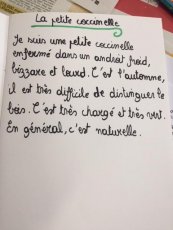 La petite coccinelle
Je suis une petite coccinelle
enfermé dans un androit froid,
bizzare et lourd. C'est l'automne,
il est très difficile de distinguer le
bois. C'est très chargé et très vert.
En général, c'est naturelle.